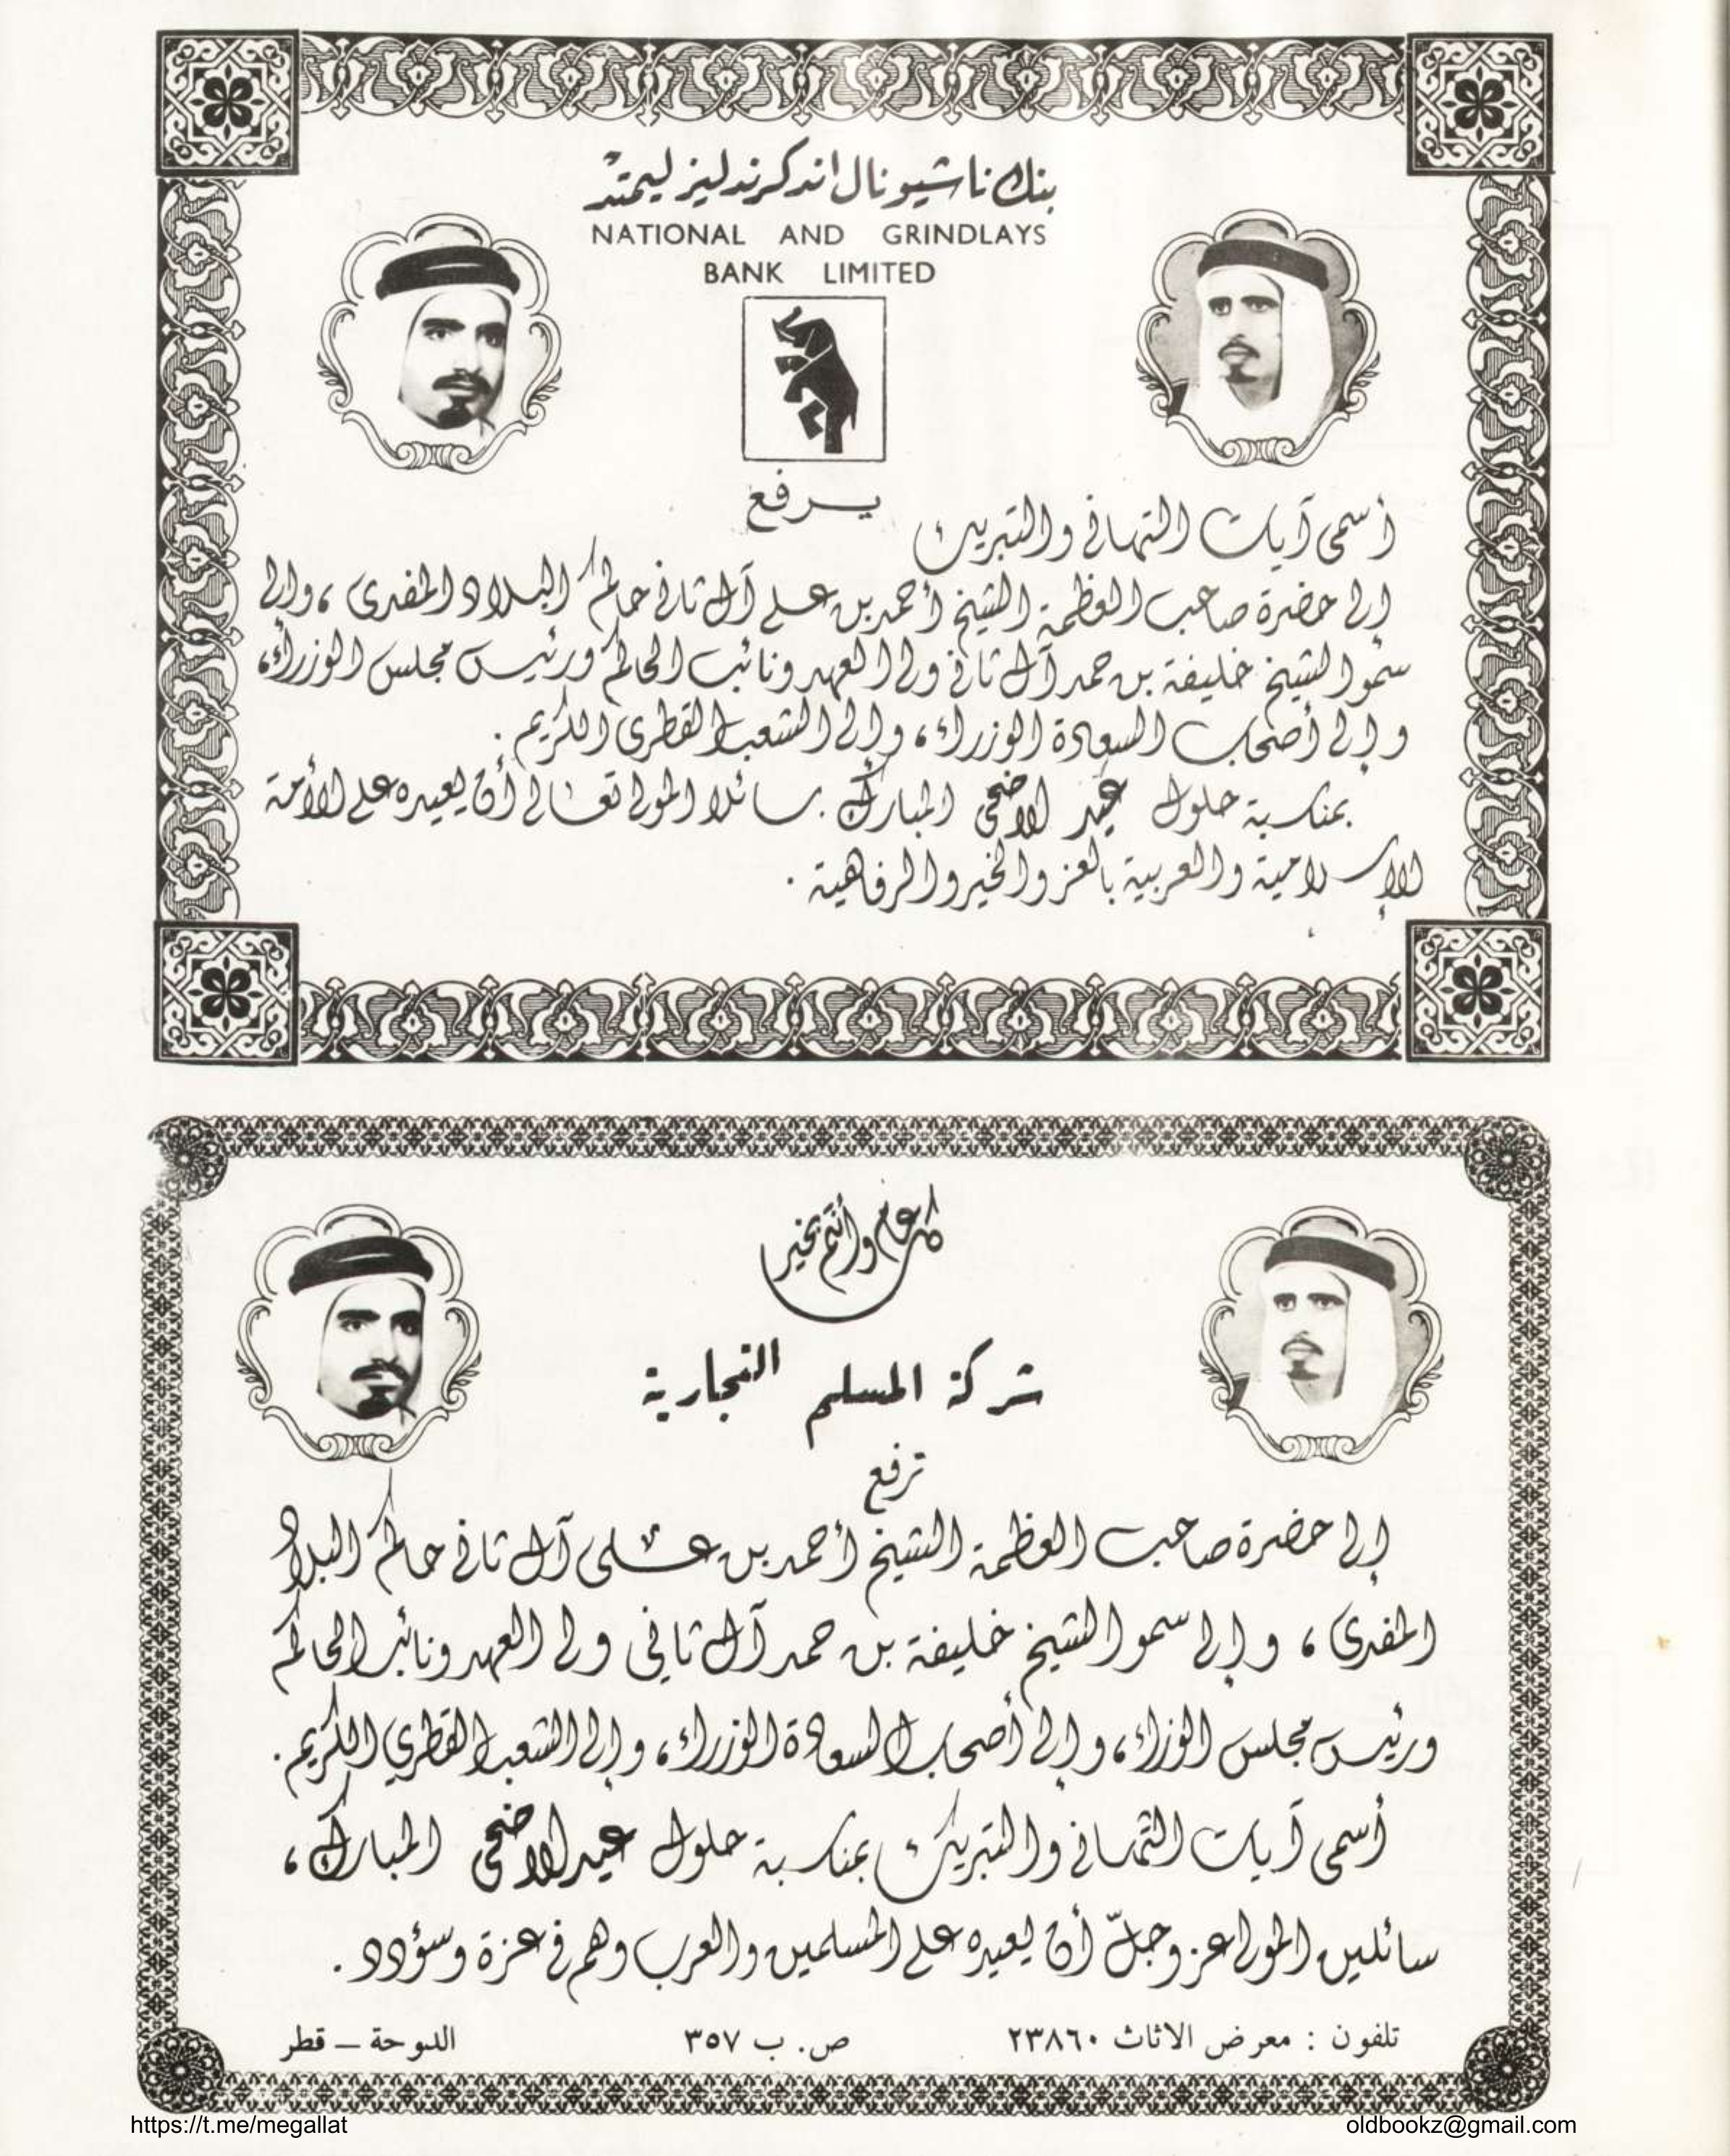 بنك ناشيونال اند كرندليز ليمتد
NATIONAL AND GRINDLAYS
BANK LIMITED
يرفع
أسمى آيات التهاني والتبريك
إلى حضرة صاحب العظمة الشيخ أحمد بن علي آل ثاني حاكم البلاد المفدى ، وإلى
سمو الشيخ خليفة بن حمد آل ثاني ولي العهد ونائب الحاكم ورئيس مجلس الوزراء،
وإلى أصحاب السعادة الوزراء ، وإلى الشعب القطري الكريم .
بمناسبة حلول عيد الاضحى المبارك . سائلا المولى تعالى أن يعيده على الأمة
الإسلامية والعربية بالعز والخير والرفاهية .
كل عام وأنتم بخير
شركة المسلم التجارية
ترفع
إلى حضرة صاحب العظمة الشيخ أحمد بن علي آل ثاني حاكم البلاد
المفدى ، وإلى سمو الشيخ خليفة بن حمد آل ثاني ولي العهد ونائب الحاكم
ورئيس مجلس الوزراء ، وإلى أصحاب السعادة الوزراء ، وإلى الشعب القطري الكريم .
أسمى آيات التهاني والتبريك بمناسبة حلول عيد الاضحى المبارك ،
سائلين المولى عز وجلّ أن يعيده على المسلمين والعرب وهم في عزة وسؤدد .
تلفون : معرض الاثاث ٢٣٨٦٠ ص. ب ٣٥٧ الدوحة – قطر
https://t.me/megallat oldbookz@gmail.com